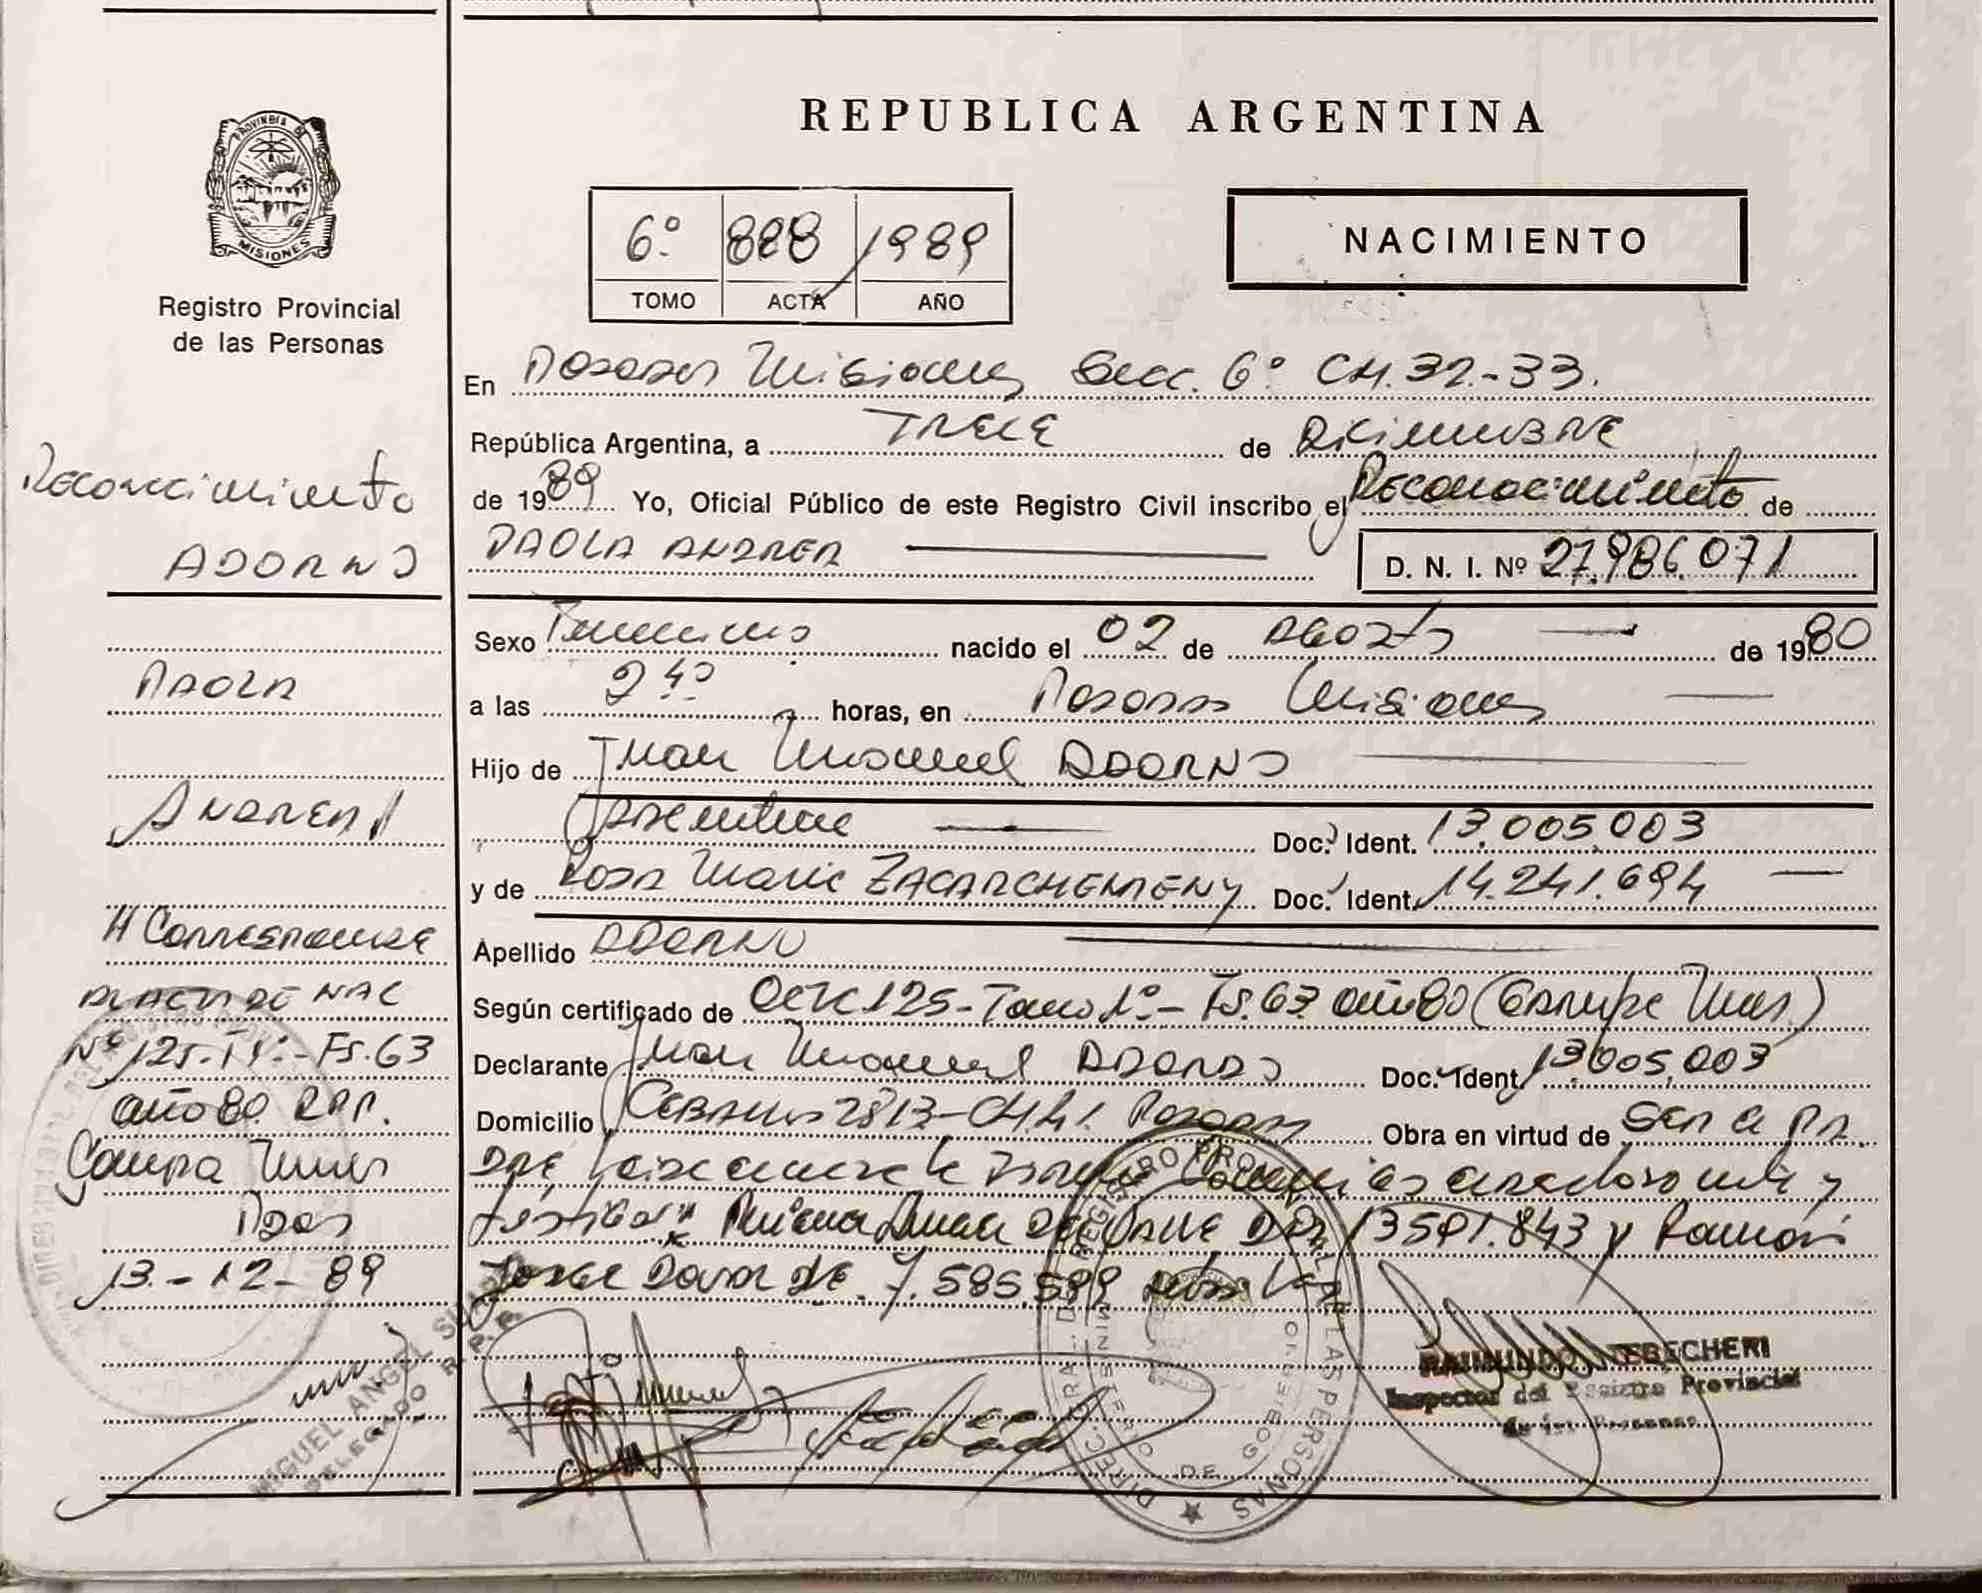 REPUBLICA ARGENTINA
PROVINCIA DE
MISIONES
Registro Provincial
de las Personas
6º 888 1989
TOMO ACTA AÑO
NACIMIENTO
En Posadas Misiones Secc. 6º CH. 32.-33.
República Argentina, a TRECE de Diciembre
de 1989 Yo, Oficial Público de este Registro Civil inscribo el Reconocimiento de
PAOLA ANDREA
D. N. I. Nº 27.986.071
Sexo Femenino nacido el 02 de Agosto de 1980
a las 2 40 horas, en Posadas Misiones
Hijo de Juan Manuel ADORNO
Argentina Doc. Ident. 13.005.003
y de Rosa Maria ZACARCHEMENY Doc. Ident. 14.241.694
Apellido ADORNO
Según certificado de Acta 125 - Tomo 1º - Fs. 63 año 80 (Garupa Mnes.)
Declarante Juan Manuel ADORNO Doc. Ident. 13.005.003
Domicilio 2813 - CH. Posadas Obra en virtud de Ser el Pa-
dre,
testigos 13591.843 y Ramón
Jorge 7.585.589
Reconocimiento
ADORNO
PAOLA
ANDREA
Corresponde
al ACTA DE NAC
Nº 125 - Tº - Fs. 63
año 80 RPP.
Garupa Mnes
Pdas
13.-12-89
MIGUEL ANGEL
DELEGADO R. P. P.
REGISTRO PROVINCIAL DE LAS PERSONAS
MINISTERIO DE GOBIERNO
RAIMUNDO TEBECHERI
Inspector del Registro Provincial
de las Personas